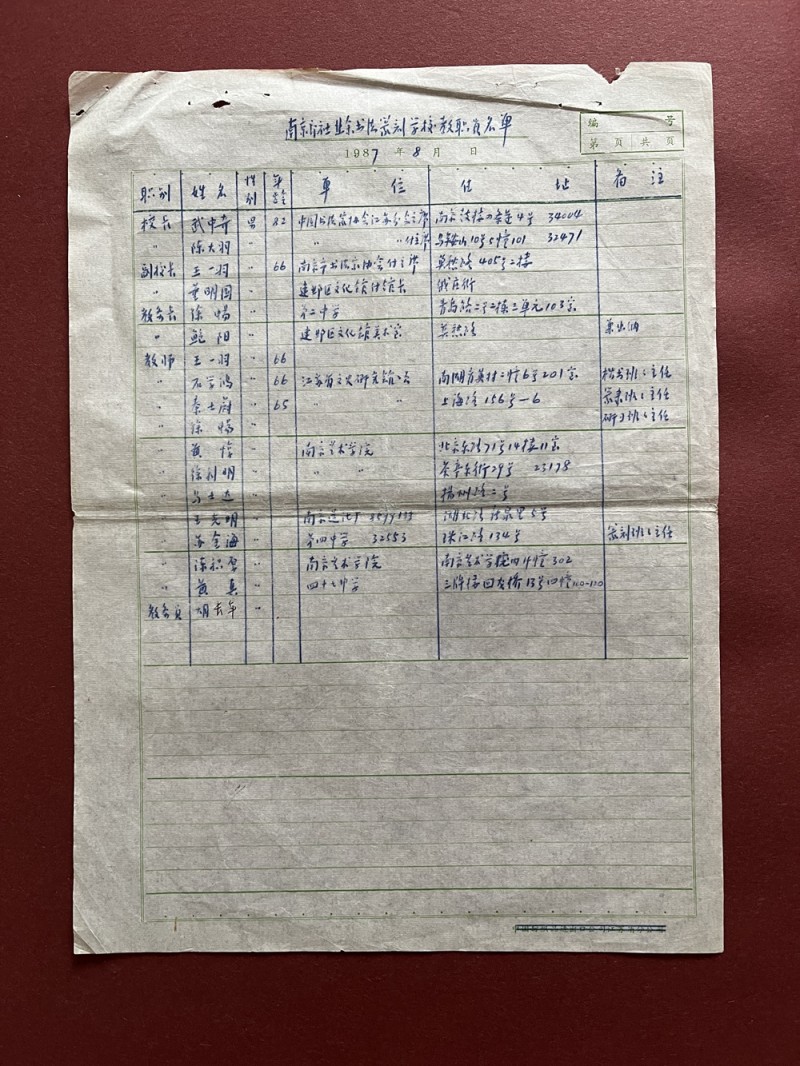 南京市社业余书法篆刻学校教职员名单
编 号
1987 年 8 月 日
第 页 共 页
职别 姓名 性别 年龄 单位 住址 备注
校长 武中奇 男 82 中国书法家协会江苏分会主席 南京 4号 34004
〃 陈大羽 〃 〃 付主席 马鞍山10号5幢101 32471
副校长 王一羽 〃 66 南京市书法家协会付主席 莫愁路405号2楼
〃 董明国 〃 建邺区文化馆付馆长
教务长 徐畅 〃 第二中学 青岛路二号2栋三单元103室
〃 鲍阳 〃 建邺区文化馆美术室 莫愁路 兼出纳
教师 王一羽 〃 66
〃 石学鸿 〃 66 江苏省文史研究馆馆员 南湖 二幢6号201室 楷书班班主任
〃 秦士蔚 〃 65 〃 〃 上海路156号-6 篆隶班班主任
〃 徐畅 〃 研习班班主任
〃 黄惇 〃 南京艺术学院 北京东路71号14楼11室
〃 徐利明 〃 〃 〃 29号 23178
〃 马士达 扬州路二号
〃 王光明 〃 南京 湖北路 5号
〃 苏金海 〃 第四中学 32553 珠江路134号 篆刻班班主任
〃 陈积厚 〃 南京艺术学院 南京艺术学院四十幢302
〃 黄真 〃 四十七中学 三牌楼回龙桥13号四幢110-120
教务员 胡 〃